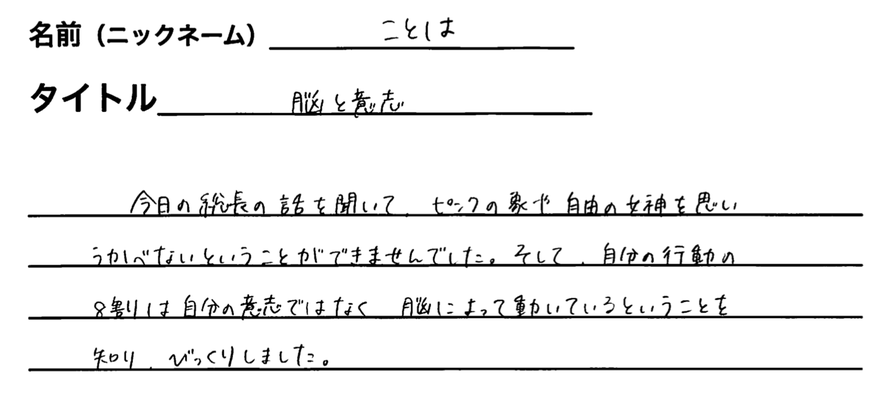 名前（ニックネーム） ことは
タイトル 脳と意志
今日の総長の話を聞いて、ピンクの象や自由の女神を思い
うかべないということができませんでした。そして、自分の行動の
8割は自分の意志ではなく、脳によって動いているということを
知り、びっくりしました。